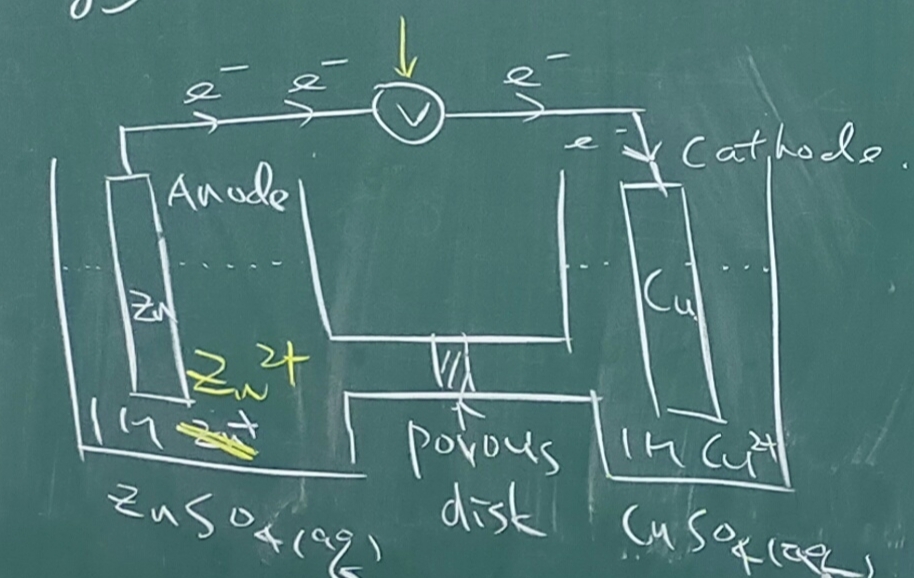 e⁻ e⁻ e⁻
V
e⁻ Cathode.
Anode
Zn Cu
Zn²⁺
1M 1M Cu²⁺
porous
disk
ZnSO₄(aq) CuSO₄(aq)